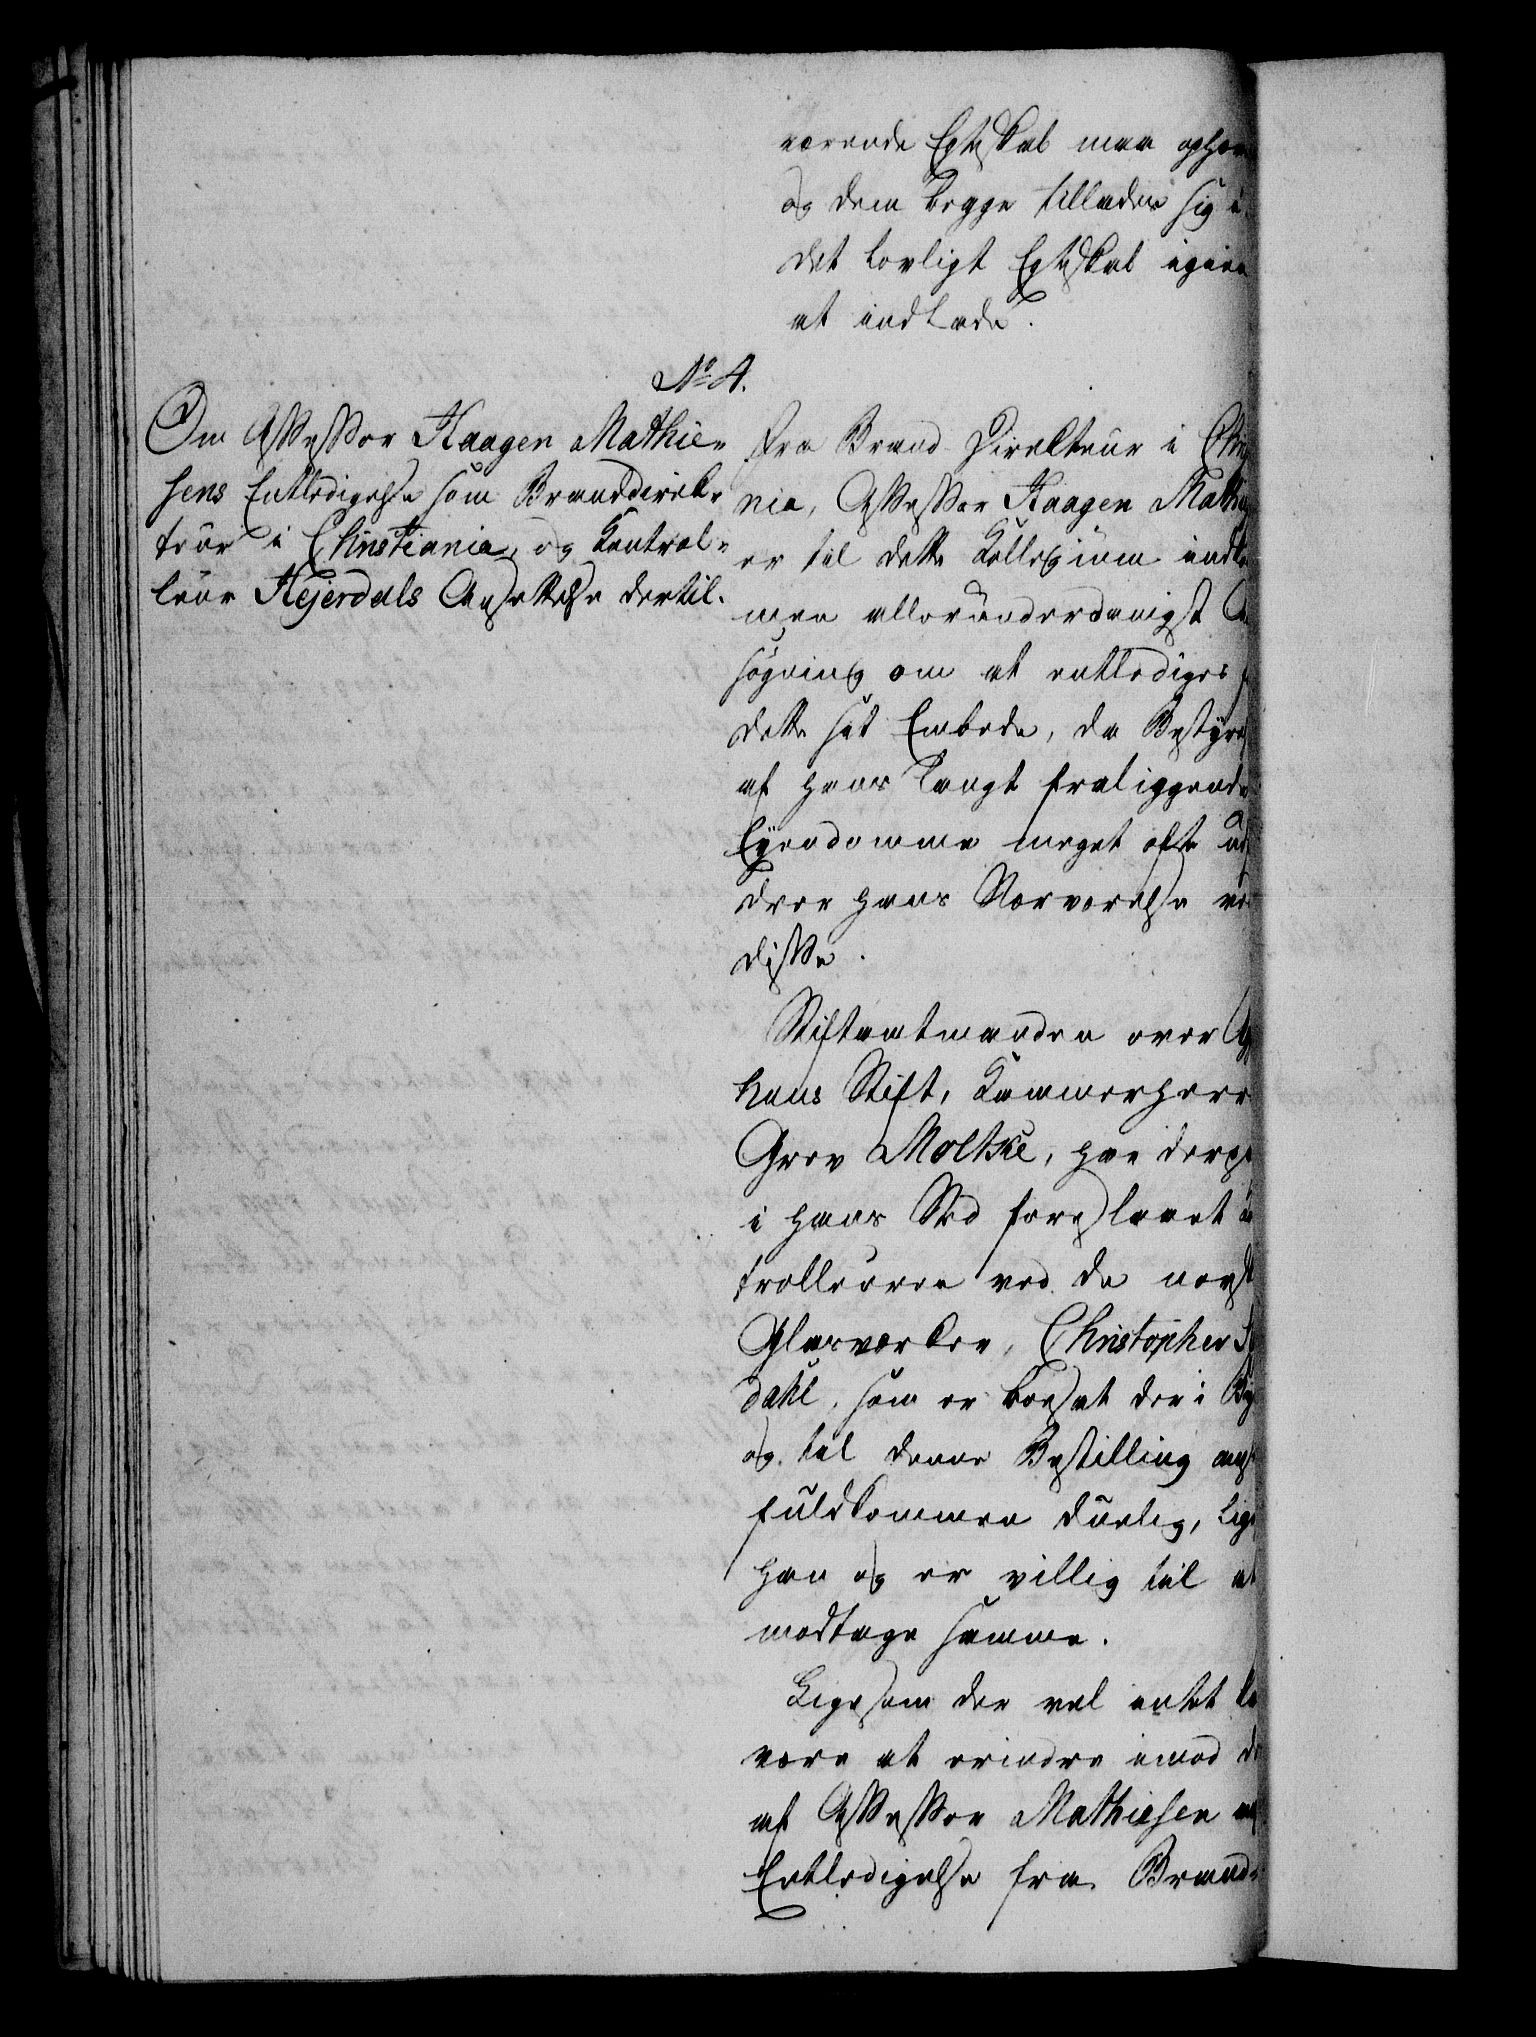 værende Egteskab maa ophæve
og dem begge tillades sig i
det lovligt Egteskab igien
at indlade.
No 4.
Om Assessor Haagen Mathie-
sens Entledigelse som Branddirek-
teur i Christiania, og Kontrol-
leur Hejerdals Ansættelse dertil.
Fra Brand-Direkteur i Christ
nia, Assessor Haagen Mathie
er til dette Kollegium indko
men allerunderdanigst An
søgning om at entlediges f
dette sit Embede, da Bestyrel
af hans langt fraliggende
Eyendomme meget ofte ud
drer hans Nærværelse ve
disse.
Stiftamtmanden over Ag
huus Stift, Kammerherr
Grev Moltke, har derpaa
i hans Sted foreslaaet
trolleuren ved de norske
Glasværker, Christopher H
dahl, som er boesat der i By
og til denne Bestilling ans
fuldkommen duelig, lige
han og er villig til at
modtage samme.
Ligesom der vel intet k
være at erindre imod de
af Assessor Mathiesen
Entledigelse fra Brand-